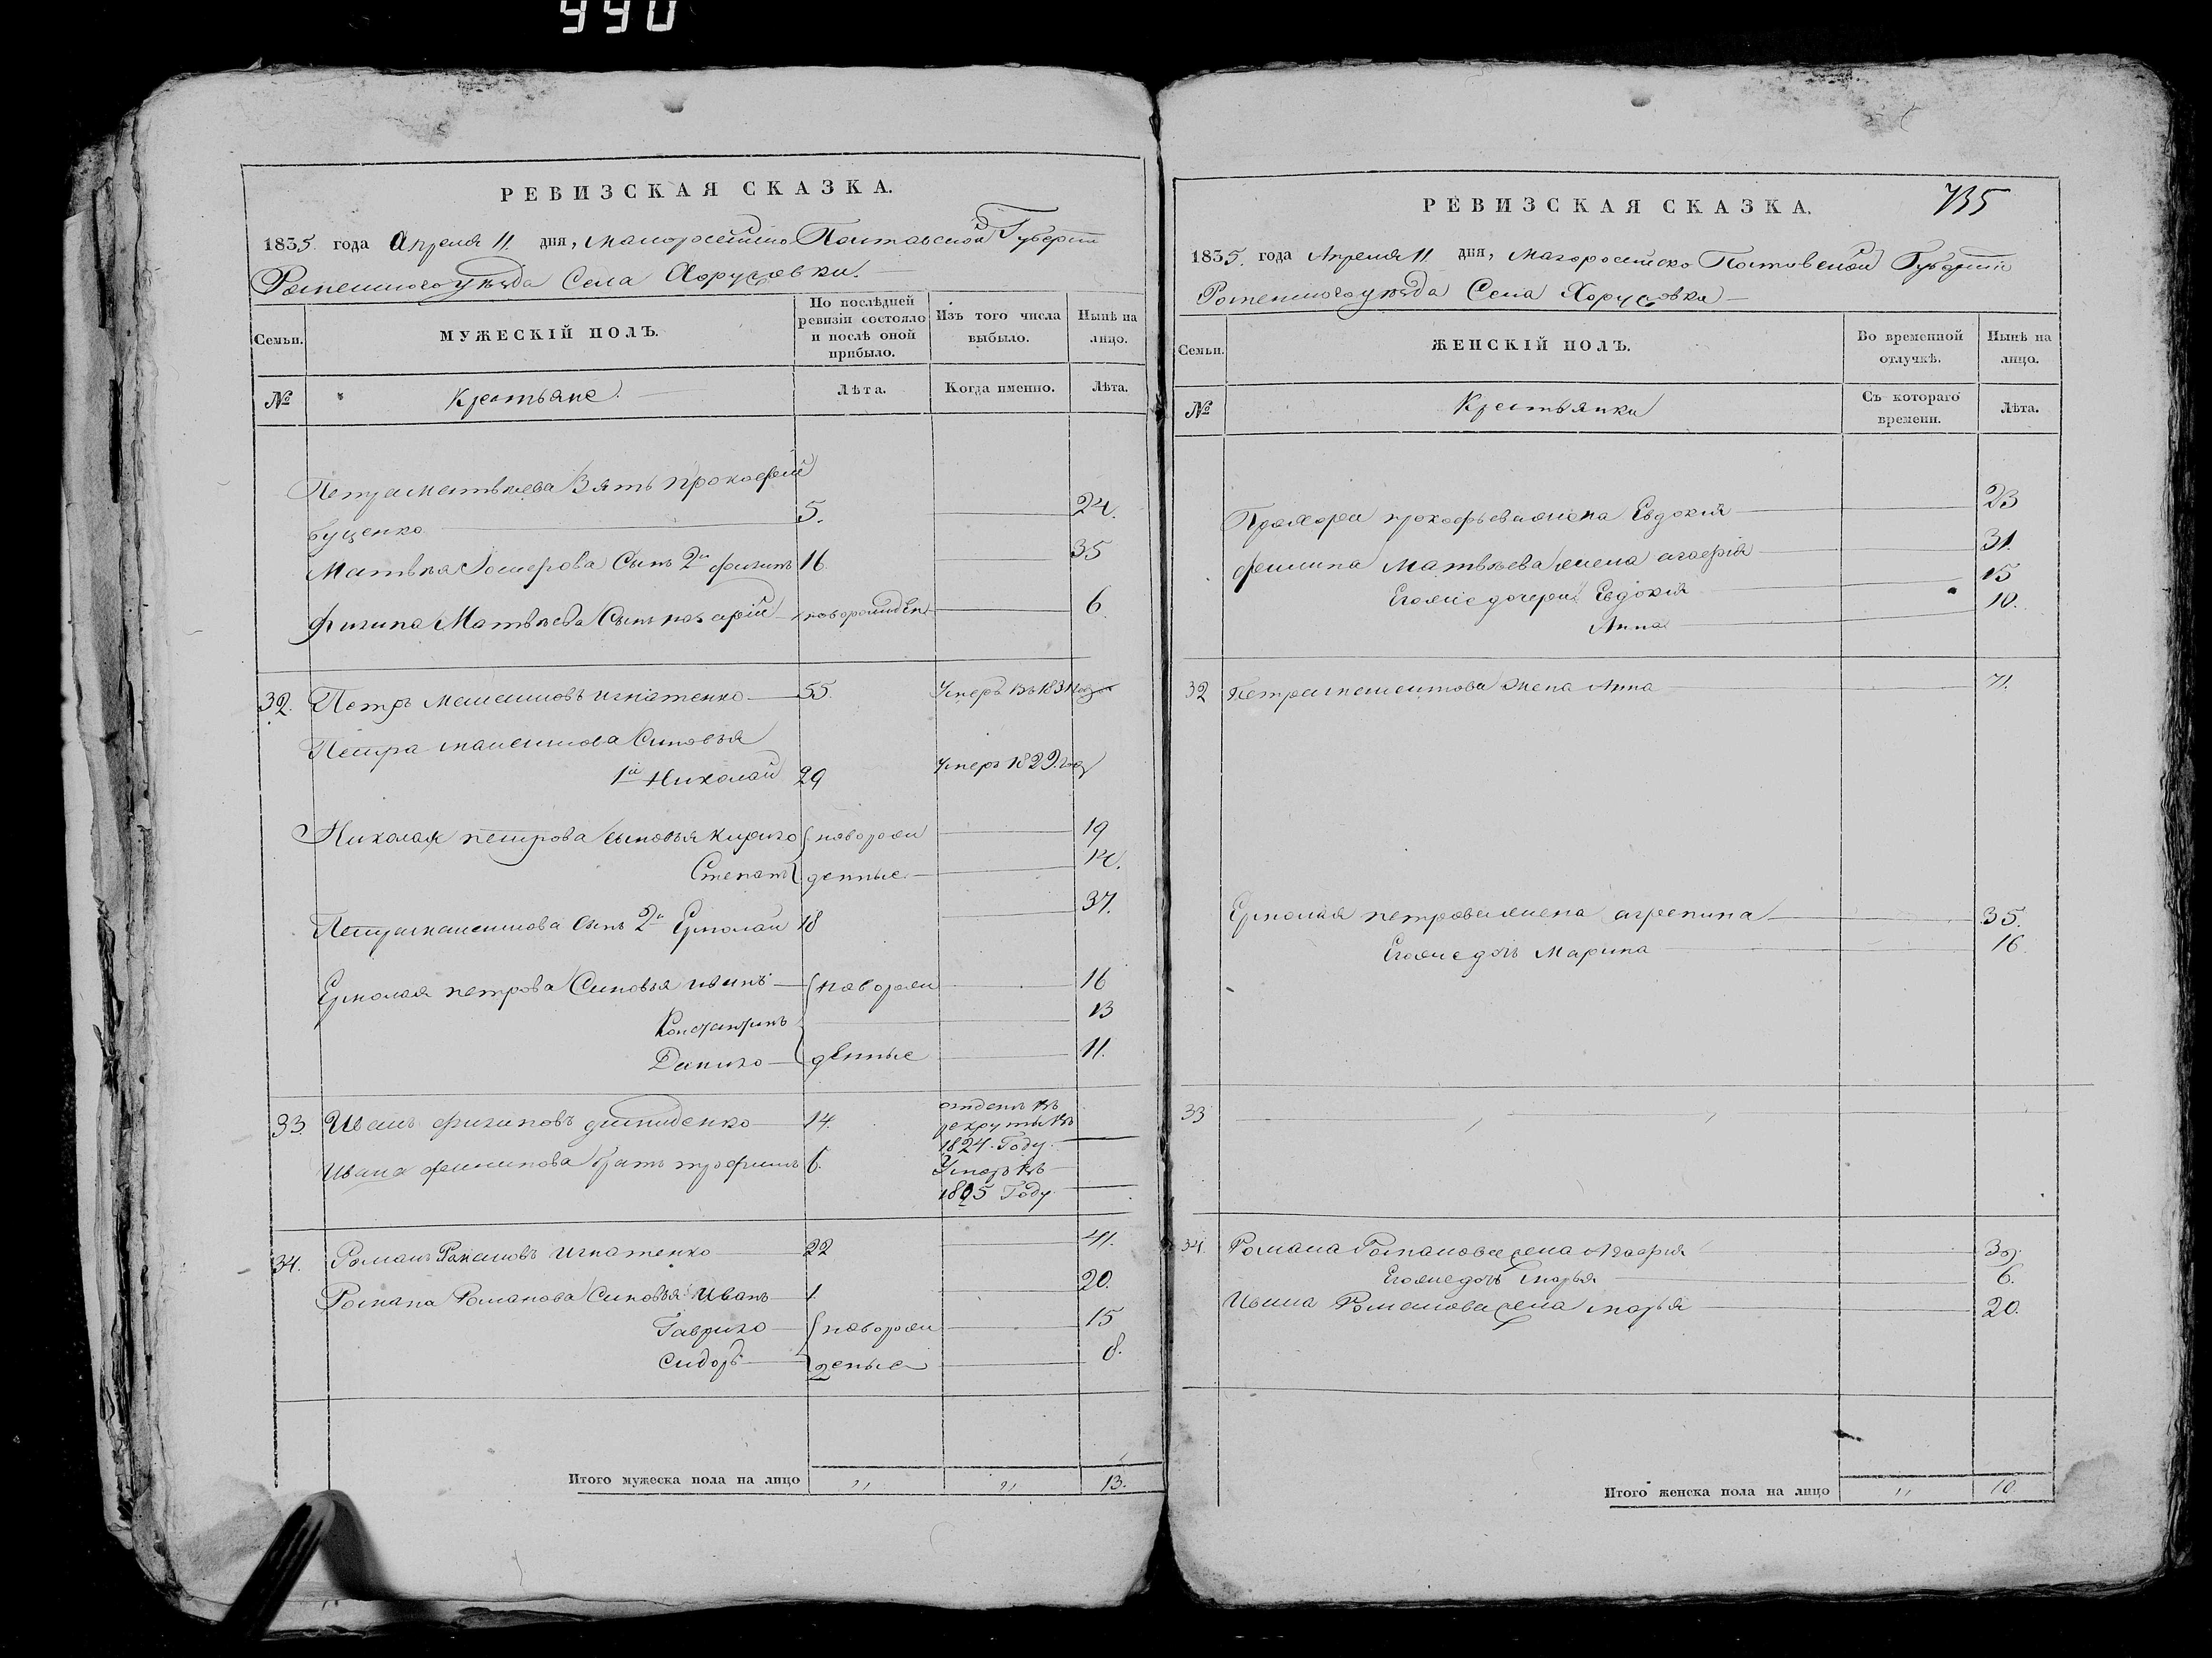 990
РЕВИЗСКАЯ СКАЗКА.
1835. года Апреля 11. дня, Малоросійско Полтавской Губерніи
Роменского уѣзда Села Хоруговки.
Семьи.
МУЖЕСКІЙ ПОЛЪ.
По послѣдней ревизіи состояло и послѣ оной прибыло.
Изъ того числа выбыло.
Нынѣ на лицо.
№
Крестьяне.
Лѣта.
Когда именно.
Лѣта.
Петра Матвѣева Зять Прокофій
Буценко 5. 24.
Матвѣя сынъ 2й Филипъ 16 35
Филипа Матвѣева Сынъ Назарій новорожден 6
32. Петръ Максимовъ Игнатенко 55. Умеръ въ 1831 году
Петра Максимова Синовья
1й Николай 29 Умеръ 1829. году
Николая Петрова сыновья Кирило новорож 19
Степанъ денные 14.
Петра Максимова Сынъ 2й Ермолай 18 37.
Ермолая Петрова Синовья Иванъ новорож 16
Константинъ 13
Данило денные 11.
33. Иванъ Филиповъ 14. отданъ въ
рекруты въ
1824. Году.
Ивана Филипова братъ Трофимъ 6. Умеръ въ
Году
34. Романъ Романовъ Игнатенко 22 41.
Романа Романова Синовья Иванъ 1. 20.
Гаврило новорож 15
Сидоръ деные 8.
Итого мужеска пола на лицо " " 13.
735
РЕВИЗСКАЯ СКАЗКА.
1835. года Апреля 11 дня, Малоросійско Полтавской Губерніи
Роменского уѣзда Села Хоруговки
Семьи.
ЖЕНСКІЙ ПОЛЪ.
Во временной отлучкѣ.
Нынѣ на лицо.
№
Крестьянки
Съ котораго времени.
Лѣта.
Прокофьева жена Евдокія 23
Филипа Матвѣева жена Агафія 31.
Его же дочери Евдокія 15
Анна 10.
32 Петра Максимова Жена Анна 71.
Ермолая Петрова жена Агрепина 35.
Его же дочь Марина 16
33
34. Романа Романова жена Агафія
Его же дочь Марья 6.
Ивана Романова жена Марья 20.
Итого женска пола на лицо " 10